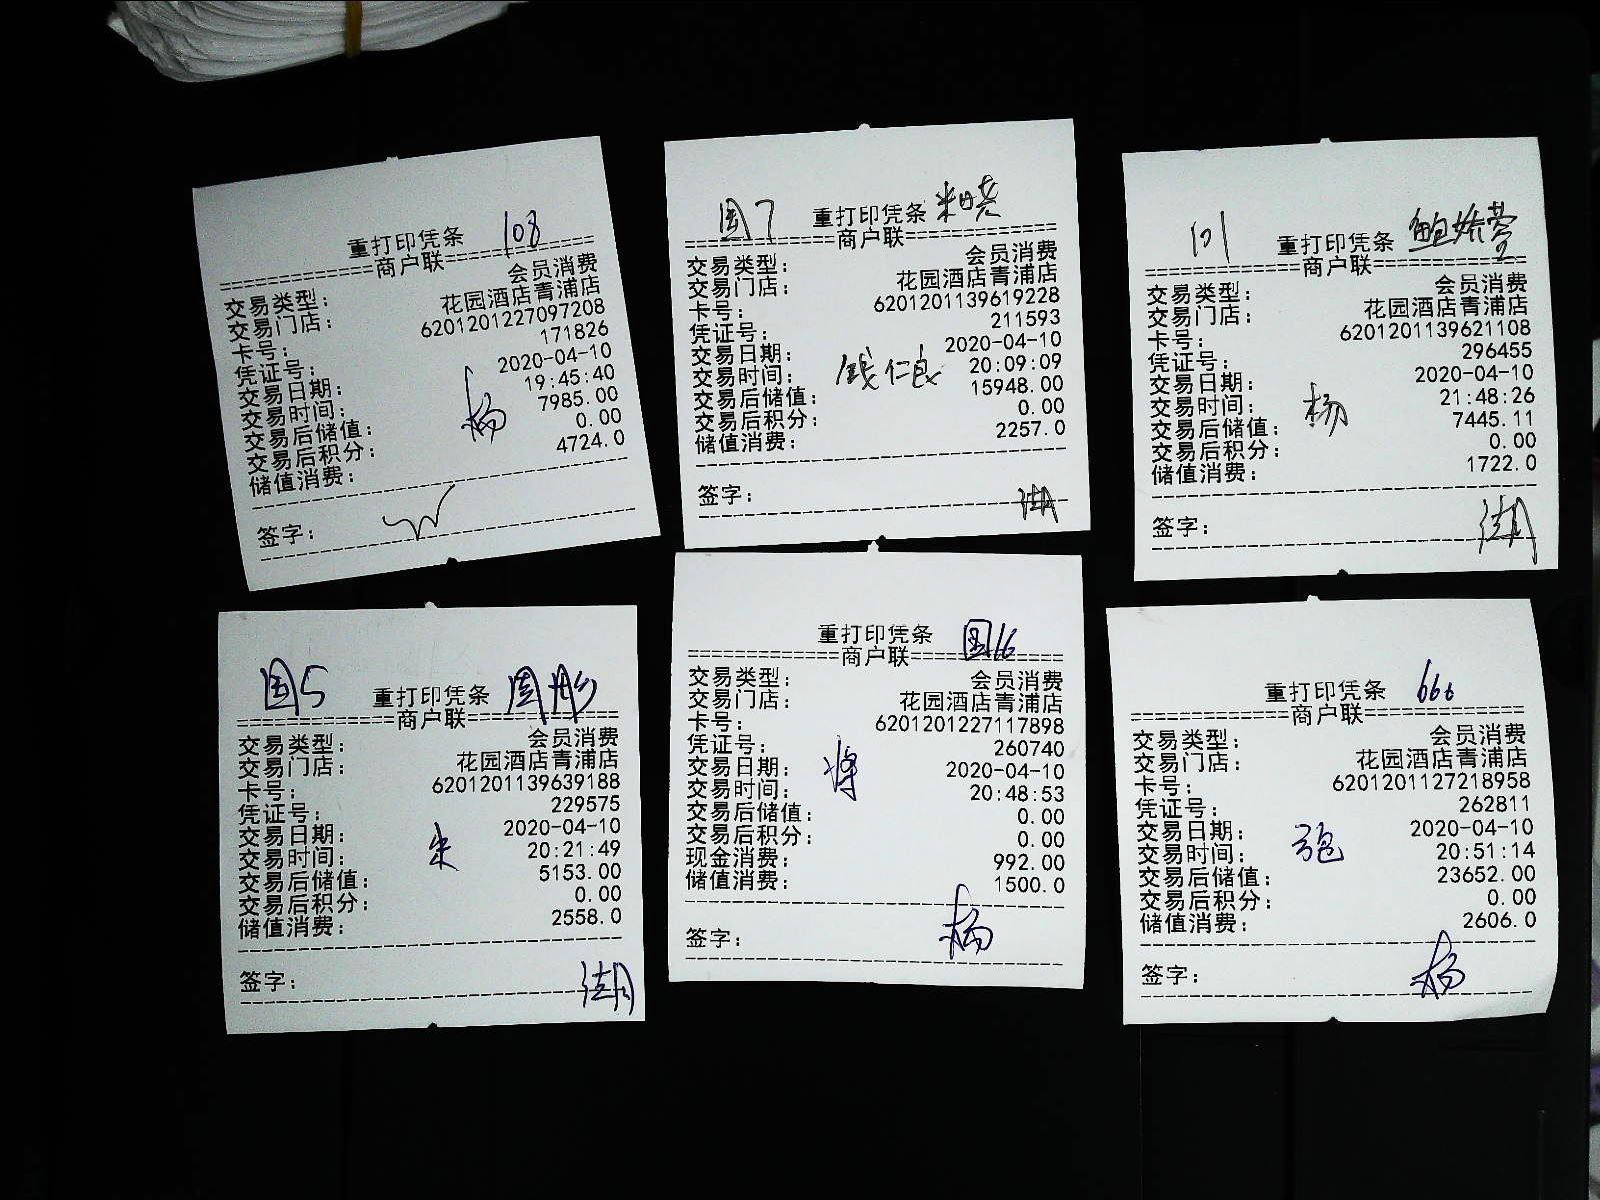 重打印凭条 108
商户联
交易类型: 会员消费
交易门店: 花园酒店青浦店
卡号: 6201201227097208
凭证号: 171826
交易日期: 2020-04-10
交易时间: 19:45:40
交易后储值: 7985.00
交易后积分: 0.00
储值消费: 4724.0
杨
签字:
国7 重打印凭条
商户联
交易类型: 会员消费
交易门店: 花园酒店青浦店
卡号: 6201201139619228
凭证号: 211593
交易日期: 2020-04-10
交易时间: 20:09:09
交易后储值: 15948.00
交易后积分: 0.00
储值消费: 2257.0
钱仁良
签字:
101 重打印凭条
商户联
交易类型: 会员消费
交易门店: 花园酒店青浦店
卡号: 6201201139621108
凭证号: 296455
交易日期: 2020-04-10
交易时间: 21:48:26
交易后储值: 7445.11
交易后积分: 0.00
储值消费: 1722.0
杨
签字:
国5 重打印凭条 周彤
商户联
交易类型: 会员消费
交易门店: 花园酒店青浦店
卡号: 6201201139639188
凭证号: 229575
交易日期: 2020-04-10
交易时间: 20:21:49
交易后储值: 5153.00
交易后积分: 0.00
储值消费: 2558.0
朱
签字:
重打印凭条 国16
商户联
交易类型: 会员消费
交易门店: 花园酒店青浦店
卡号: 6201201227117898
凭证号: 260740
交易日期: 2020-04-10
交易时间: 20:48:53
交易后储值: 0.00
交易后积分: 0.00
现金消费: 992.00
储值消费: 1500.0
签字: 杨
重打印凭条 666
商户联
交易类型: 会员消费
交易门店: 花园酒店青浦店
卡号: 6201201127218958
凭证号: 262811
交易日期: 2020-04-10
交易时间: 20:51:14
交易后储值: 23652.00
交易后积分: 0.00
储值消费: 2606.0
签字: 杨